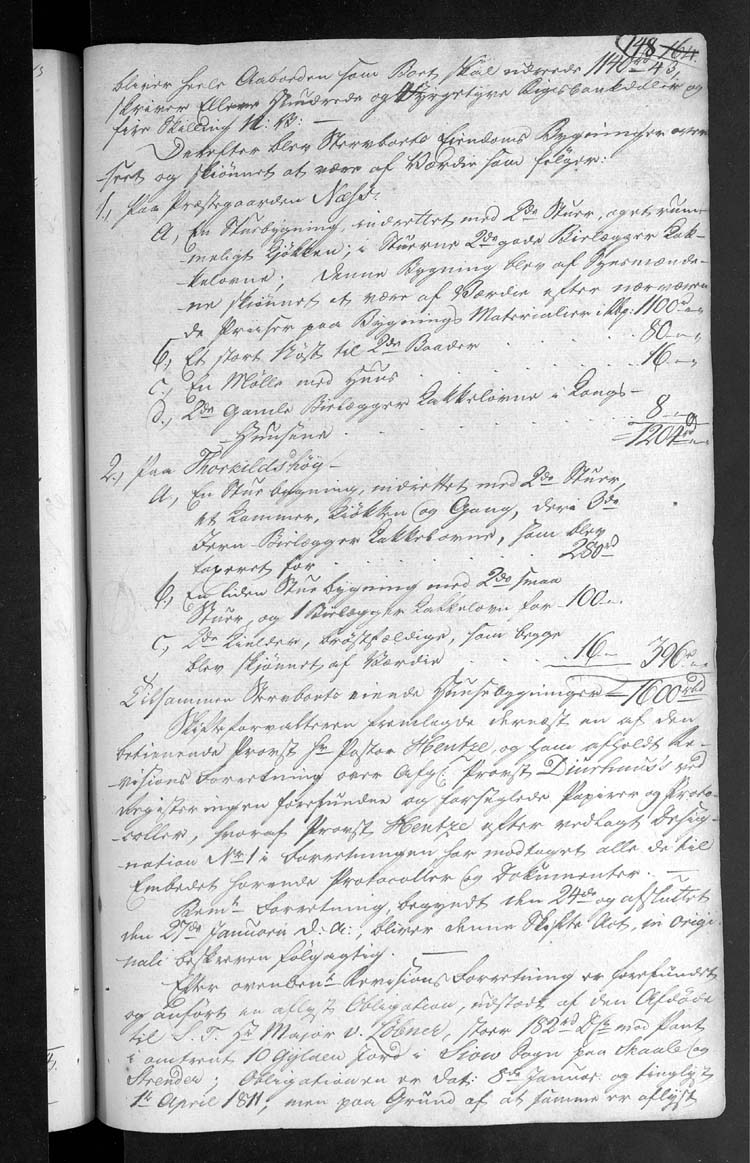 148 164.
bliver heele Aaboeden som Boet skal udrede 1140 rd 4 s,
skriver Elleve Hundrede og Fyrgetyve Rigsbankdaler og
fire Skilling N: V: —
Derefter blev Stervboets Eiendoms Bygninger efter
seet og skiönnet at være af Værdie som fölger:
1, Paa Præstegaarden Næs:
a, En Stuebygning, indrettet med 2de Stuer, og et rum-
meligt Kjökken; i Stuerne 2de gode Bielægger Kak-
kelovne; denne Bygning blev af Synsmænde-
ne skiönnet at være af Værdie efter nærværen
de Priser paa Bygnings Materialier 1100 rd
b, Et stort Nöst til 2de Baader . . . 80 „ „
c, En Mölle med Huus . . . 16 „ „
d, 2de gamle Bielægger Kakkelovne i Longs-
Huusene . . . 8 „
= 1204 rd
2, Paa Thorkildshöy —
a, En Stuebygning, indrettet med 2de Stuer,
et Kammer, Kiökken og Gang, deri 3de
Jern-Bielægger Kakkelovne, som blev
taxeret for . . . 280 rd
b, En liden Stuebygning med 2de smaa
Stuer, og 1 Bielægger Kakkelovn for 100 „
c, 2de Kielder, bröstfældige, som begge
blev skiönnet af Værdie . . . 16 „ 396 „ „
Tilsammen Stervboets eiende Huusebygninger = 1600 rbd
Skifteforvalteren fremlagde dernæst en af den
betienende Provst Hr Pastor Hentze, og ham afholdt Re-
visions Forretning over Afg: Provst Djurhuus's ved
Registeringen forefundne og forseglede Papirer og Proto-
coller, hvoraf Provst Hentze efter vedlagt Desig-
nation No 1 i Forretningen har modtaget alle de til
Embedet hörende Protocoller og Dokumenter. —
Bemte Forretning, begyndt den 24de og afsluttet
den 27de Januarii d: A:, bliver denne Skifte Act, in origi
nali beskreven fölgagtig. —
Efter ovenbente Revisions Forretning er forefundet
og anfört en aflyst Obligation, udstædt af den Afdöde
til S. T. Hr Major v. Löbner, stoer 182 rd mod Pant
i omtrent 10 Gylden Jord i Siow Sogn paa Skaale og
Strender; Obligationen er dat: 8de Januar og tinglyst
1te April 1811; men paa Grund af at samme er aflyst